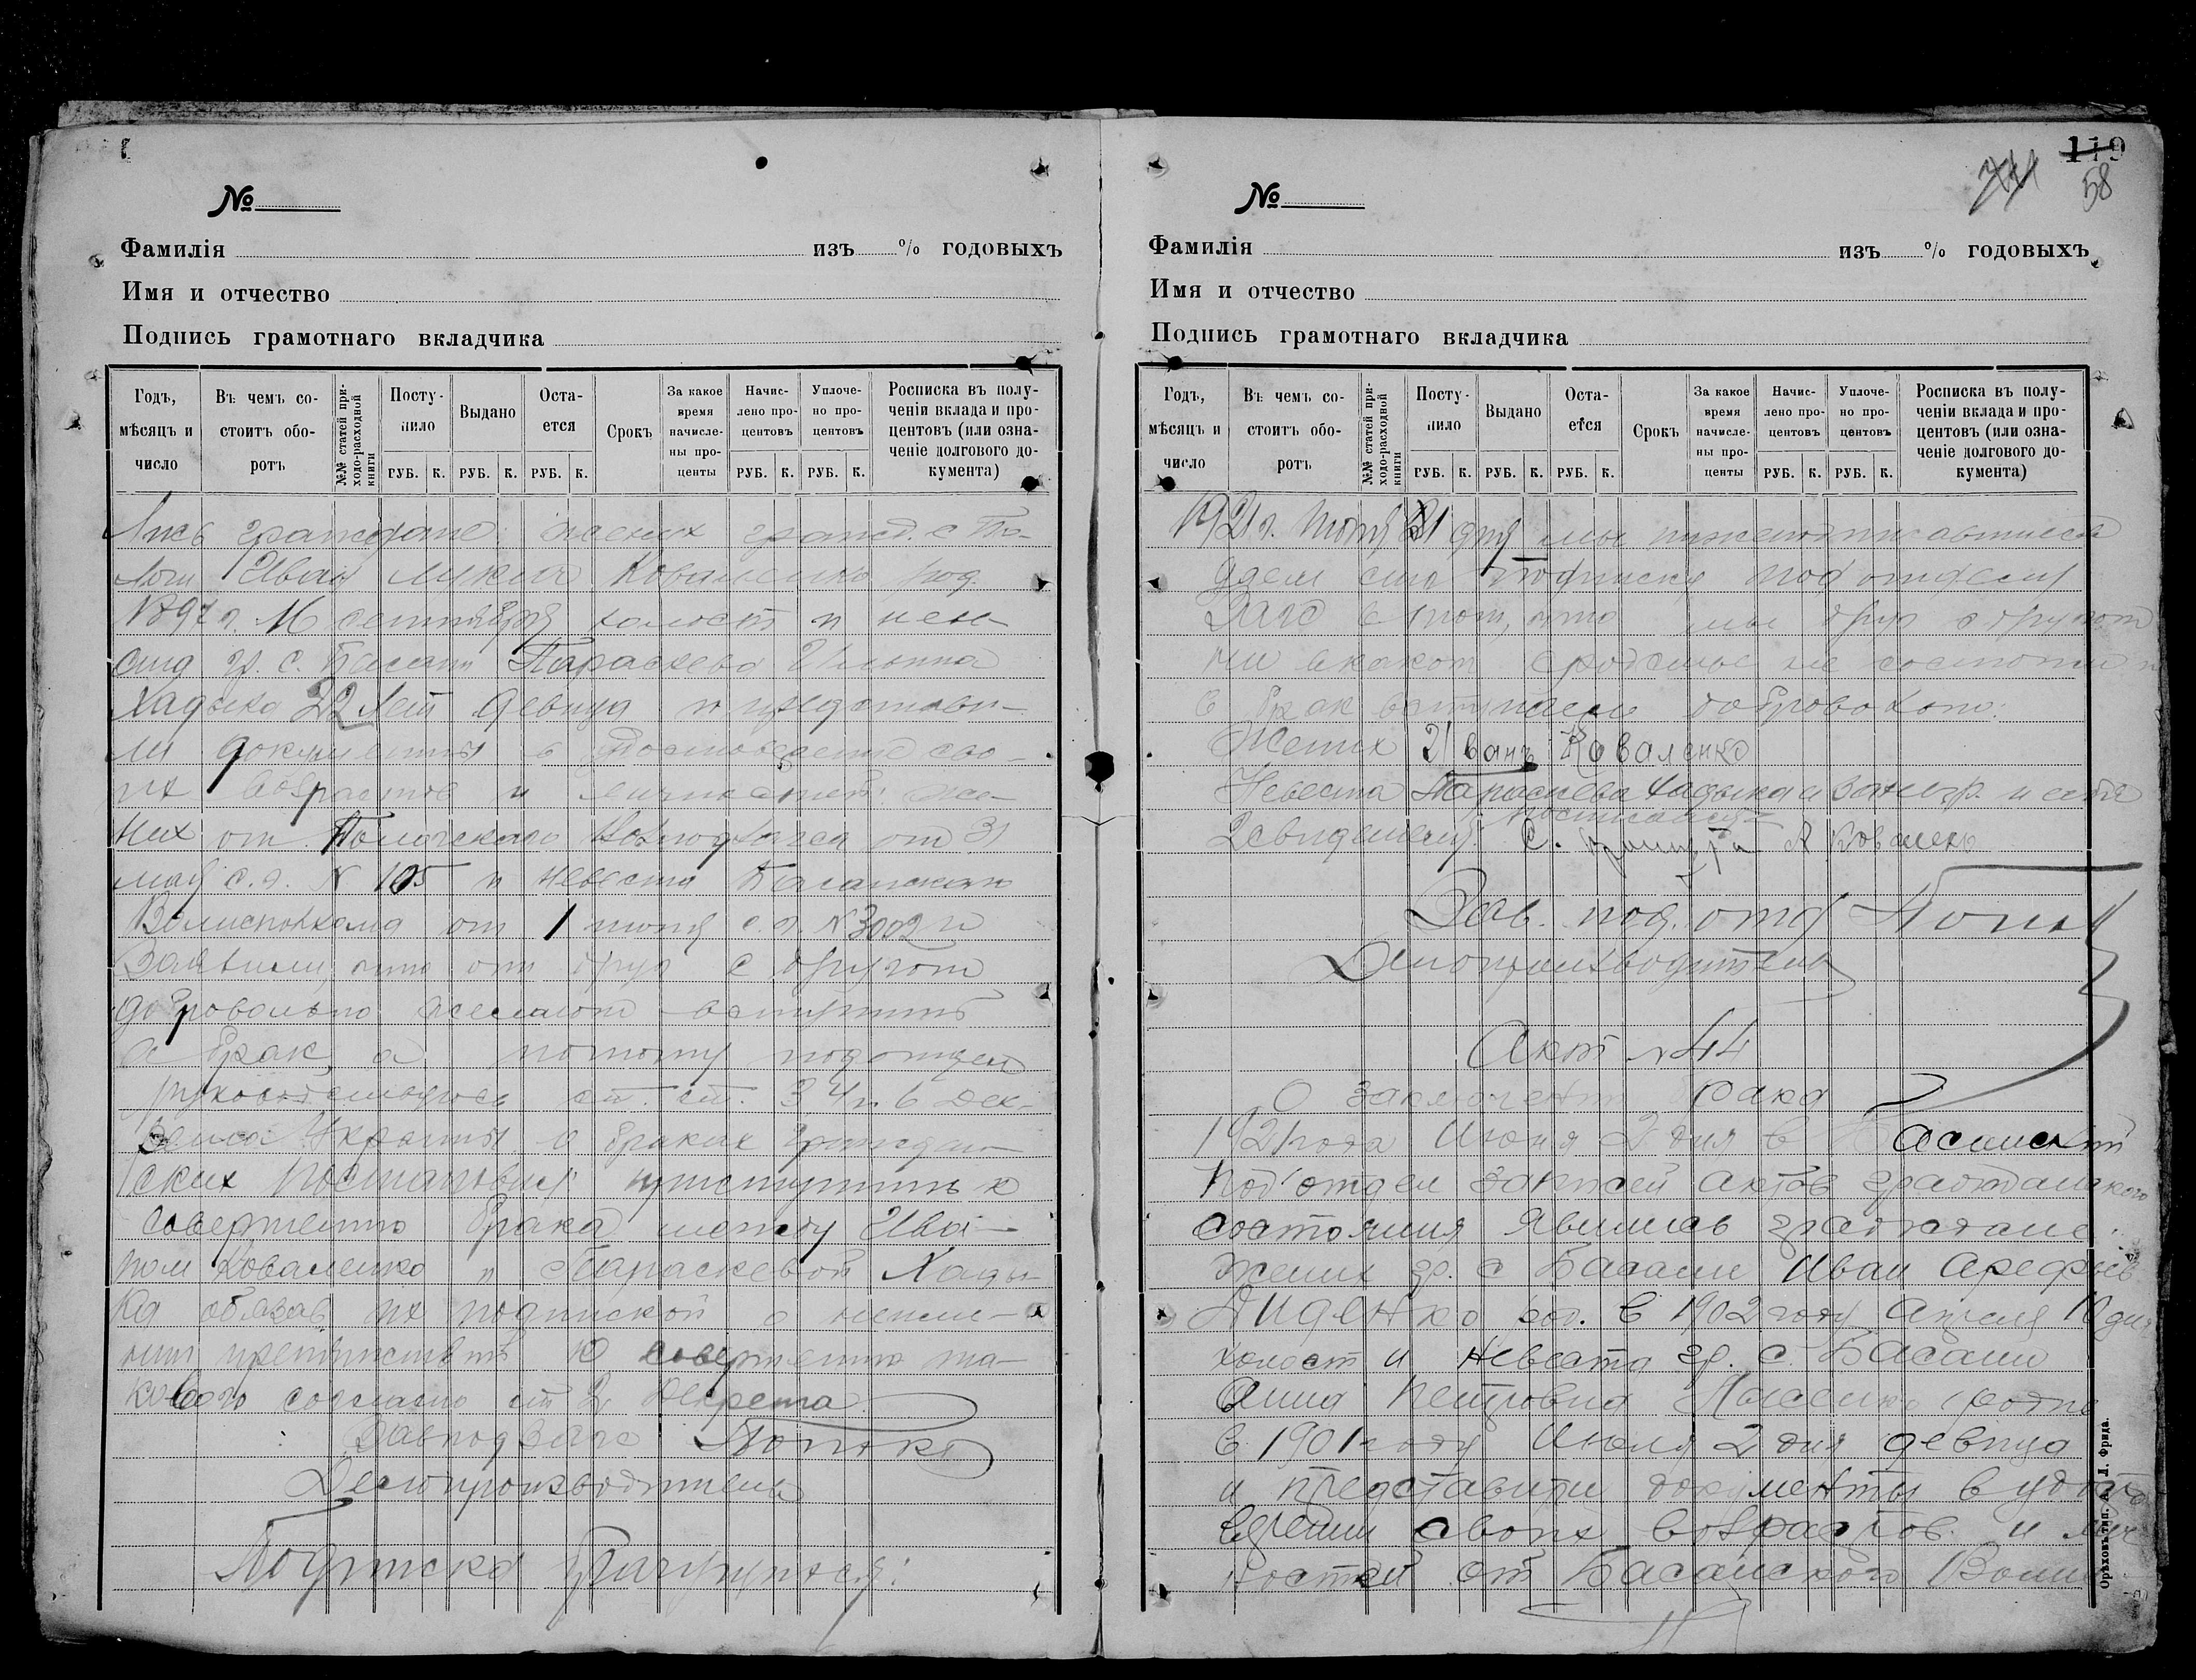 №
Фамилія изъ % годовыхъ
Имя и отчество
Подпись грамотнаго вкладчика
Годъ, мѣсяцъ и число
Въ чемъ состоитъ оборотъ
№№ статей приходо-расходной книги
Посту-пило
Выдано
Оста-ется
Срокъ
За какое время начисле-ны про-центы
Начис-лено про-центовъ
Уплоче-но про-центовъ
Росписка въ полу-
ченіи вклада и про-
центовъ (или озна-
ченіе долгового до-
кумента)
РУБ. К. РУБ. К. РУБ. К. РУБ. К. РУБ. К.
лись граждане: жених гражд. с. По-
логи Иван Лукич Коваленко род.
1897 г. 16 сентября холост и неве-
ста гр. с. Басани Параскева Ильинна
Хадыка 22 лет девица и представи-
ли документы в удостоверение сво-
их возрастов и личностей: же-
них от Пологского от 31
мая с.г. № 105 и невеста Басанского
Волисполкома от 1 июня с.г. № 3002 и
Заявили, что они друг с другом
добровольно желают вступить
в брак, а потому подотдел
руководствуясь ст. ст. 3 4 и 6 Дек-
рета Украины о браках граждан-
ских постановил: приступить к
совершению брака между Ива-
ном Коваленко и Параскевой Хады-
ка обязав их подпиской о неиме-
нии препятствий к совершению та-
кового согласно ст 2 Декрета.
Завподзагс
Делопроизводитель
Подписка брачущихся:
119
58
№
Фамилія изъ % годовыхъ
Имя и отчество
Подпись грамотнаго вкладчика
Годъ, мѣсяцъ и число
Въ чемъ состоитъ оборотъ
№№ статей приходо-расходной книги
Посту-пило
Выдано
Оста-ется
Срокъ
За какое время начисле-ны про-центы
Начис-лено про-центовъ
Уплоче-но про-центовъ
Росписка въ полу-
ченіи вклада и про-
центовъ (или озна-
ченіе долгового до-
кумента)
РУБ. К. РУБ. К. РУБ. К. РУБ. К. РУБ. К.
1921 г. Июня 1 дня мы нижеподписавшиеся
даем сию подписку подотделу
Загс в том, что мы друг с другом
ни в каком сродстве не состоим и
в брак вступаем добровольно:
Жених Иванъ Коваленко
Невеста Параскева Хадыка а за негр. и себя
2 свидетеля: С. А Коваленко
Зав. под. отд
Делопроизводитель
Акт № 44
О заключении брака
1921 года Июня 2 дня в Басанский
Под'отдел записей актов гражданского
состояния явились граждане:
жених гр. с Басани Иван Арефьев
Диденко род. в 1902 году апреля 10 дня
холост и невеста гр. с. Басани
Анна Петровна родив
в 1901 году Июля 2 дня девица
и представили документы в удосто
верении своих возрастов и лич
ностей от Басанского Волис
Орѣховъ, тип. А. Л. Фрида.